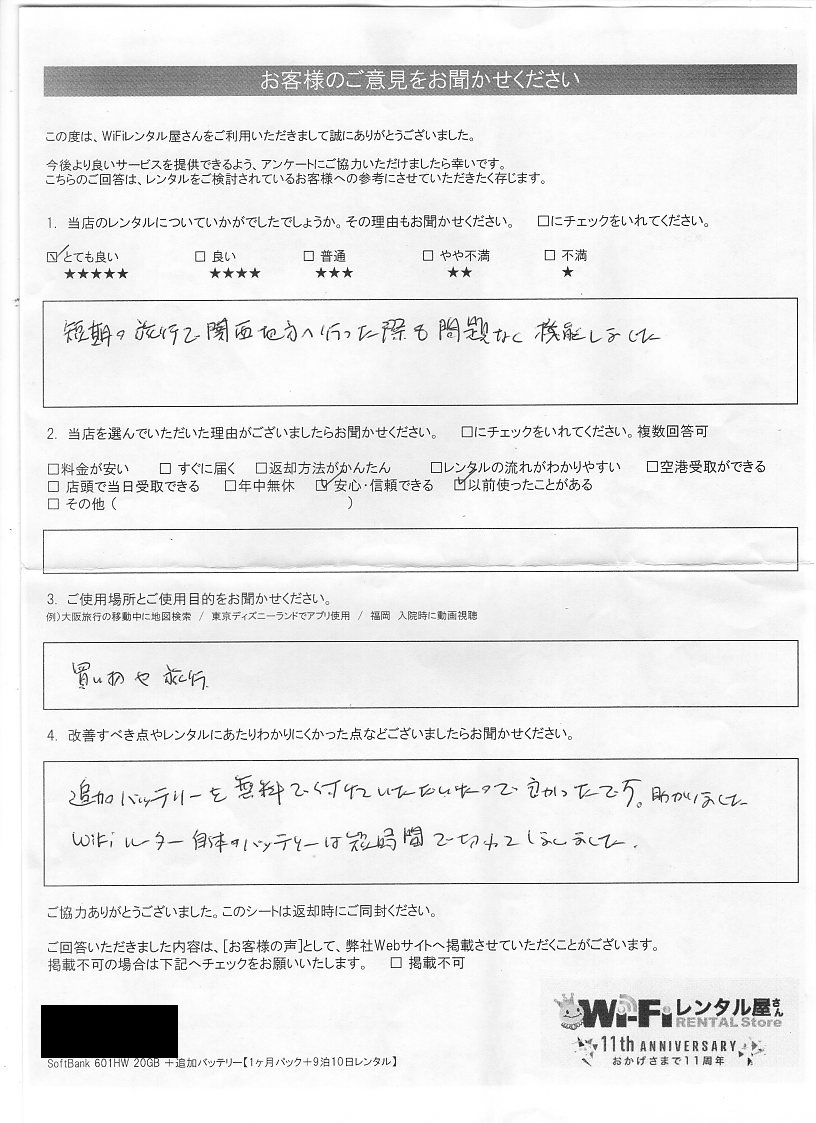 お客様のご意見をお聞かせください
この度は、WiFiレンタル屋さんをご利用いただきまして誠にありがとうございました。
今後より良いサービスを提供できるよう、アンケートにご協力いただけましたら幸いです。
こちらのご回答は、レンタルをご検討されているお客様への参考にさせていただきたく存じます。
1. 当店のレンタルについていかがでしたでしょうか。その理由もお聞かせください。 □にチェックをいれてください。
☑とても良い □ 良い □ 普通 □ やや不満 □ 不満
★★★★★ ★★★★ ★★★ ★★ ★
短期の旅行で関西地方へ行った際も問題なく機能しました
2. 当店を選んでいただいた理由がございましたらお聞かせください。 □にチェックをいれてください。複数回答可
□料金が安い □ すぐに届く □返却方法がかんたん □レンタルの流れがわかりやすい □空港受取ができる
□ 店頭で当日受取できる □年中無休 ☑ 安心・信頼できる ☑以前使ったことがある
□ その他 ( )
3. ご使用場所とご使用目的をお聞かせください。
例)大阪旅行の移動中に地図検索 / 東京ディズニーランドでアプリ使用 / 福岡 入院時に動画視聴
買い物や旅行
4. 改善すべき点やレンタルにあたりわかりにくかった点などございましたらお聞かせください。
追加バッテリーを無料で付けていただいたので良かったです。助かりました
WiFiルーター自体のバッテリーは短時間で切れてしまいました.
ご協力ありがとうございました。このシートは返却時にご同封ください。
ご回答いただきました内容は、[お客様の声]として、弊社Webサイトへ掲載させていただくことがございます。
掲載不可の場合は下記へチェックをお願いいたします。 □ 掲載不可
Wi-Fiレンタル屋さん
RENTAL Store
11th ANNIVERSARY
おかげさまで11周年
SoftBank 601HW 20GB +追加バッテリー【1ヶ月パック+9泊10日レンタル】